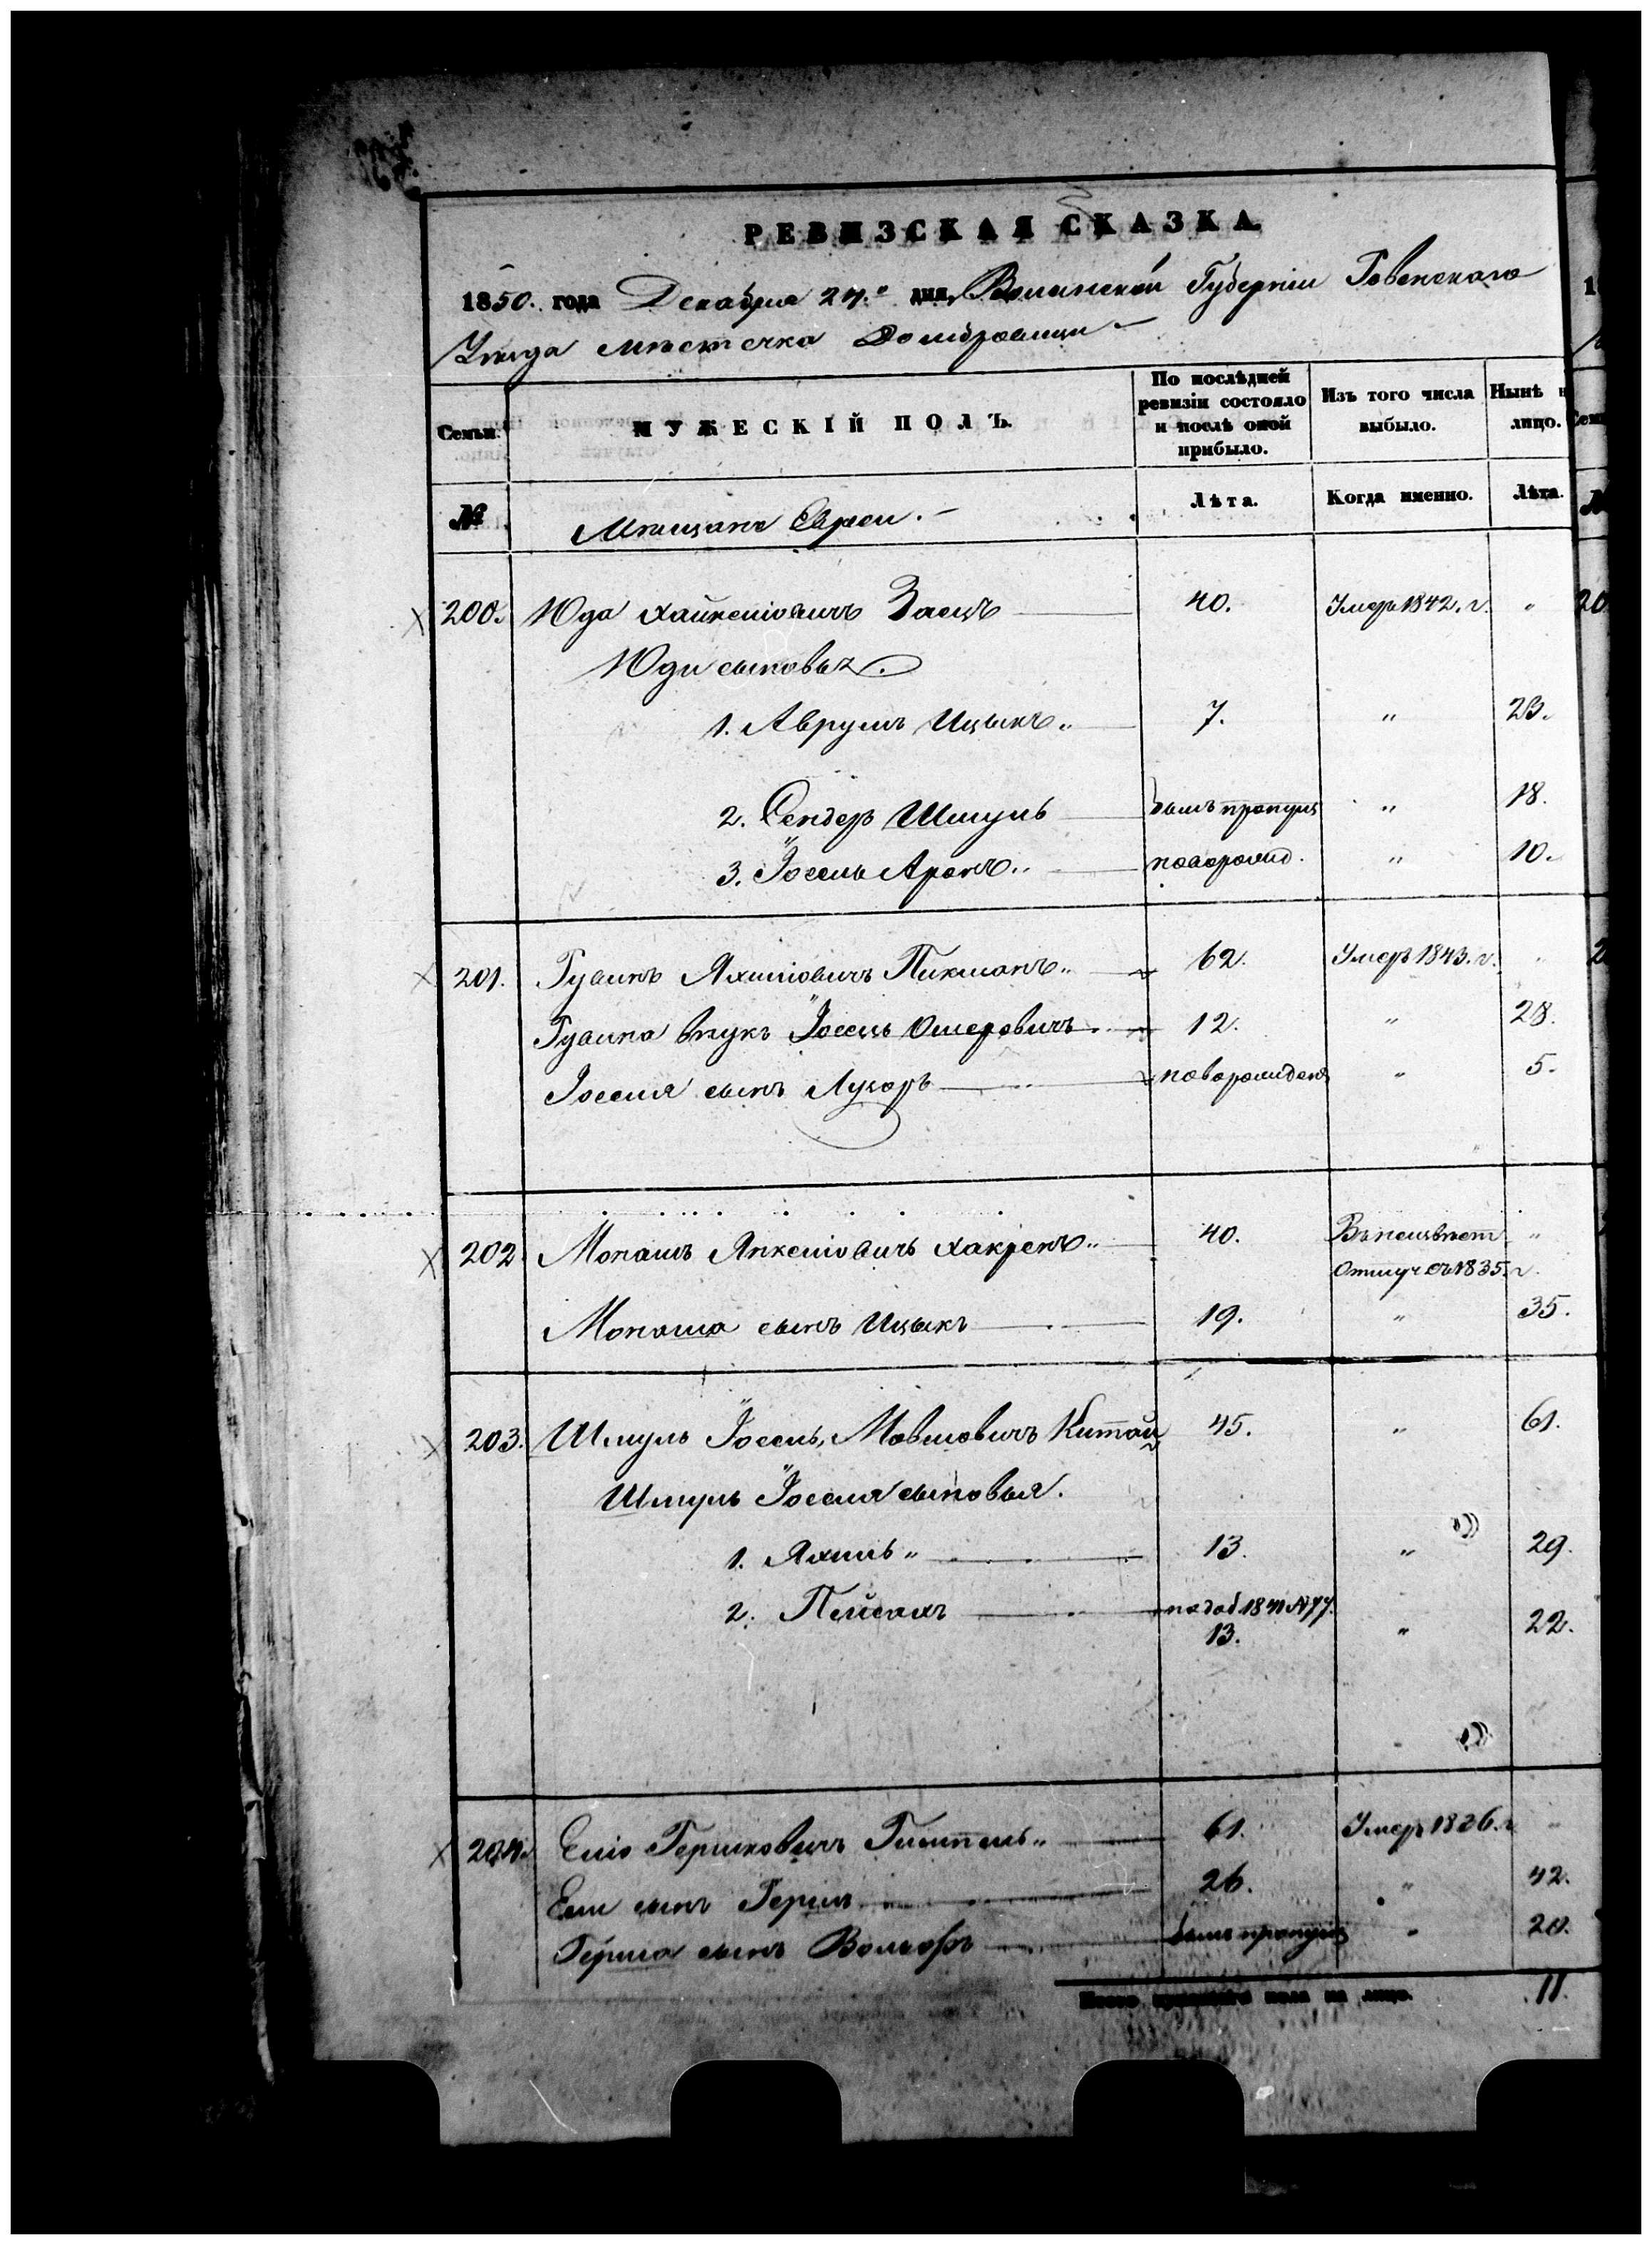 РЕВИЗСКАЯ СКАЗКА
1850. года Декабря 24." дня, Волынской Губерніи Ровенскаго
Уезда местечка Домбровицы
Семьи.
МУЖЕСКІЙ ПОЛЪ.
По послѣдней ревизіи состояло и послѣ оной прибыло.
Изъ того числа выбыло.
Нынѣ н лицо.
№
Мещане Евреи.
Лѣта.
Когда именно.
Лѣта.
200. Юда Заецъ 40. Умеръ 1842. г. "
Юди сыновья.
1. Аврумъ Ицыкъ.. 7. " 23.
2. Сендеръ Шмуль былъ пропущ " 18.
3. Іосель Аронъ.. новорожд. " 10.
201. Рувинъ Пикманъ.. 62. Умеръ 1843. г. "
Рувина внукъ Іосель Ошеровичъ 12. " 28.
Іоселя сынъ Лузоръ новорожден " 5.
202 Монашъ Янкелiовичъ 40. Въ неизвѣст "
отлуч съ 1835. г.
Монаша сынъ Ицыкъ 19. " 35.
203. Шмуль Іосель, Мовшовичъ Китай 45. " 61.
Шмуль Іоселя сыновья.
1. 13. " 29.
2. Пейсахъ по доб 1841 №77. " 22.
13.
204. Гершковичъ 61. Умеръ 1836. г "
сынъ Гершъ 26. " 42.
Герша сынъ Вольфъ былъ пропущ " 20.
Итого мужескаго пола на лицо. 11.